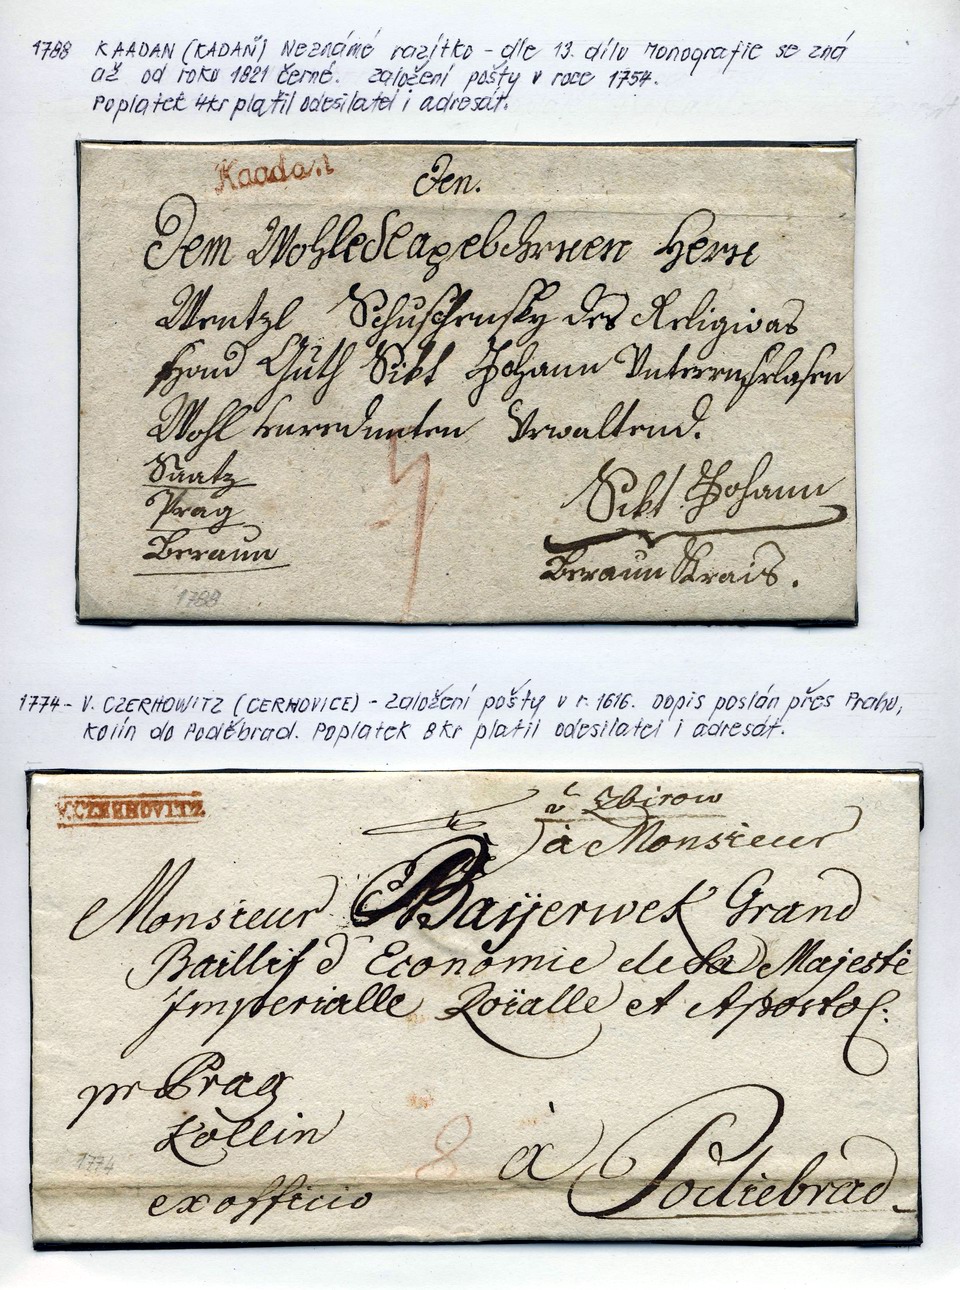 1788 KAADAN (KADAŇ) Neznámé razítko - dle 13. dílu Monografie se zná
až od roku 1821 černé. Založení pošty v roce 1754.
Poplatek 4kr platil odesilatel i adresát.
Kaadan
Den.
Dem Wohledelgebohrnen Hern
Wentzl des Religions
Fond Guth Skt Johann
Wohl Verwaltend.
Saatz
Prag
Beraun
Skt Johann
Beraun Krais.
4
1788
1774 - V. CZERNOWITZ (CERNOVICE) - Založení pošty v r. 1616. Dopis poslán přes Prahu,
Kolín do Poděbrad. Poplatek 8kr platil odesilatel i adresát.
V. CZERNOVITZ
v Zbirow
à Monsieur
Monsieur Baÿerwek Grand
Baillif d'Economie de Sa Majesté
Imperialle Roïalle et Apostol:
pr Prag
Kollin
8
à Podiebrad
1774
ex officio